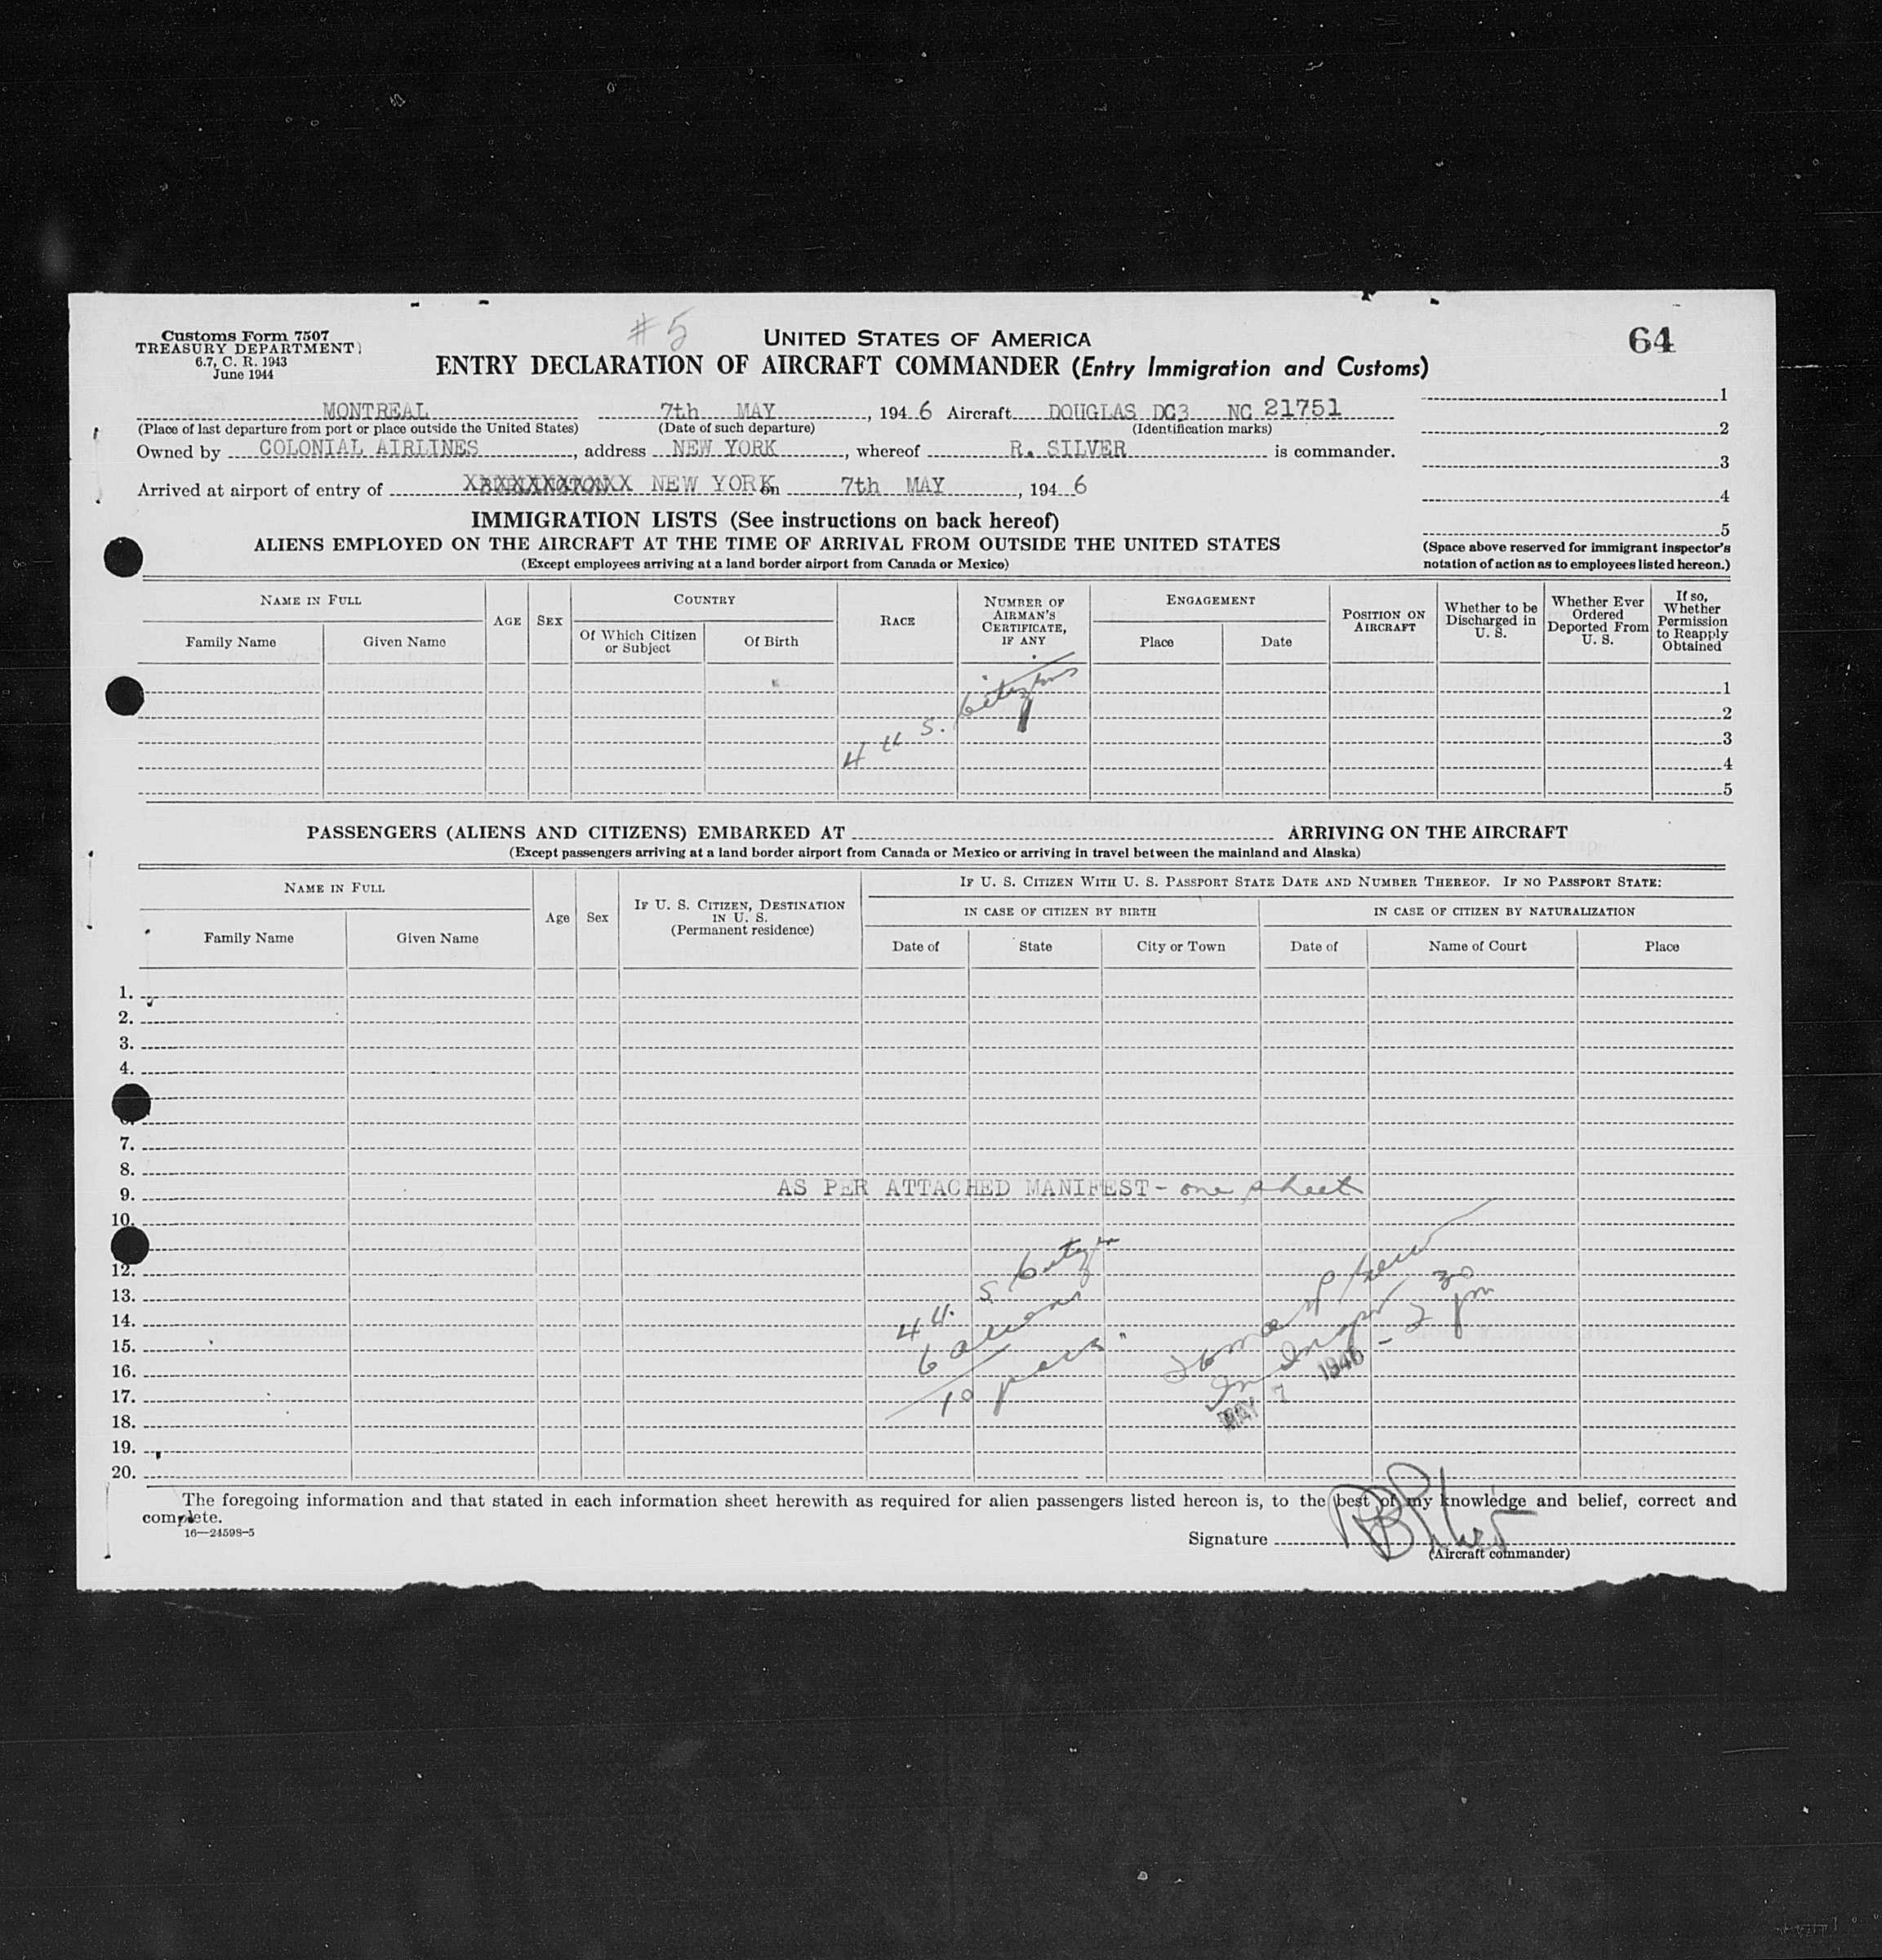 Customs Form 7507
TREASURY DEPARTMENT
6.7, C. R. 1943
June 1944
#5
UNITED STATES OF AMERICA
ENTRY DECLARATION OF AIRCRAFT COMMANDER (Entry Immigration and Customs)
64
MONTREAL 7th MAY, 1946 Aircraft DOUGLAS DC3 NC 21751
(Place of last departure from port or place outside the United States) (Date of such departure) (Identification marks)
Owned by COLONIAL AIRLINES, address NEW YORK, whereof R. SILVER is commander.
Arrived at airport of entry of NEW YORK on 7th MAY, 1946
1
2
3
4
5
(Space above reserved for immigrant inspector's
notation of action as to employees listed hereon.)
IMMIGRATION LISTS (See instructions on back hereof)
ALIENS EMPLOYED ON THE AIRCRAFT AT THE TIME OF ARRIVAL FROM OUTSIDE THE UNITED STATES
(Except employees arriving at a land border airport from Canada or Mexico)
NAME IN FULL
Family Name
Given Name
AGE
SEX
COUNTRY
Of Which Citizen
or Subject
Of Birth
RACE
NUMBER OF
AIRMAN'S
CERTIFICATE,
IF ANY
ENGAGEMENT
Place
Date
POSITION ON
AIRCRAFT
Whether to be
Discharged in
U. S.
Whether Ever
Ordered
Deported From
U. S.
If so,
Whether
Permission
to Reapply
Obtained
4 U S. Citizens
1
2
3
4
5
PASSENGERS (ALIENS AND CITIZENS) EMBARKED AT ARRIVING ON THE AIRCRAFT
(Except passengers arriving at a land border airport from Canada or Mexico or arriving in travel between the mainland and Alaska)
NAME IN FULL
Family Name
Given Name
Age
Sex
IF U. S. CITIZEN, DESTINATION
IN U. S.
(Permanent residence)
IF U. S. CITIZEN WITH U. S. PASSPORT STATE DATE AND NUMBER THEREOF. IF NO PASSPORT STATE:
IN CASE OF CITIZEN BY BIRTH
IN CASE OF CITIZEN BY NATURALIZATION
Date of
State
City or Town
Date of
Name of Court
Place
1.
2.
3.
4.
6.
7.
8.
9. AS PER ATTACHED MANIFEST - one sheet
10.
12.
13.
14.
15.
16.
17.
18.
19.
20.
4 U. S. Citizn
6 aliens
10 pass
Inspr - 2 30 pm
MAY 7 1946
The foregoing information and that stated in each information sheet herewith as required for alien passengers listed hereon is, to the best of my knowledge and belief, correct and
complete.
16—24598-5
Signature
(Aircraft commander)